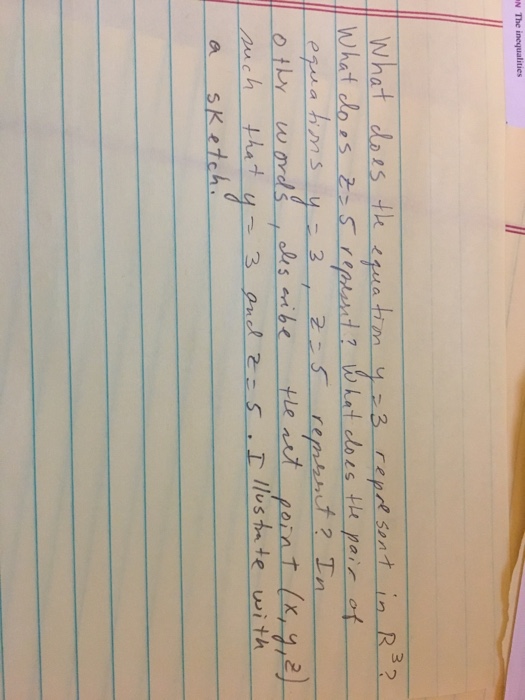 IN The inequalities
What does the equation y = 3 represent in R³?
What does z = 5 represent? What does the pair of
equations y = 3, z = 5 represent? In
other words, describe the set point (x, y, z)
such that y = 3 and z = 5. Illustrate with
a sketch.